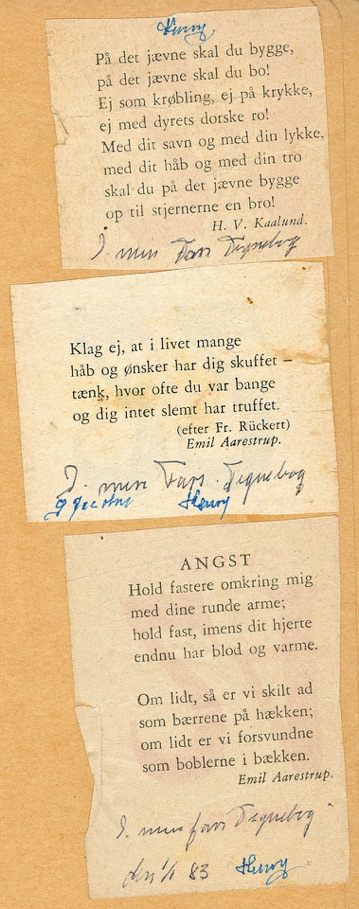 Henry
På det jævne skal du bygge,
på det jævne skal du bo!
Ej som krøbling, ej på krykke,
ej med dyrets dorske ro!
Med dit savn og med din lykke,
med dit håb og med din tro
skal du på det jævne bygge
op til stjernerne en bro!
H. V. Kaalund.
I min Fars Tegnebog
Klag ej, at i livet mange
håb og ønsker har dig skuffet –
tænk, hvor ofte du var bange
og dig intet slemt har truffet.
(efter Fr. Rückert)
Emil Aarestrup.
I min Fars Tegnebog
Henry
ANGST
Hold fastere omkring mig
med dine runde arme;
hold fast, imens dit hjerte
endnu har blod og varme.
Om lidt, så er vi skilt ad
som bærrene på hækken;
om lidt er vi forsvundne
som boblerne i bækken.
Emil Aarestrup.
I min fars Tegnebog
83 Henry